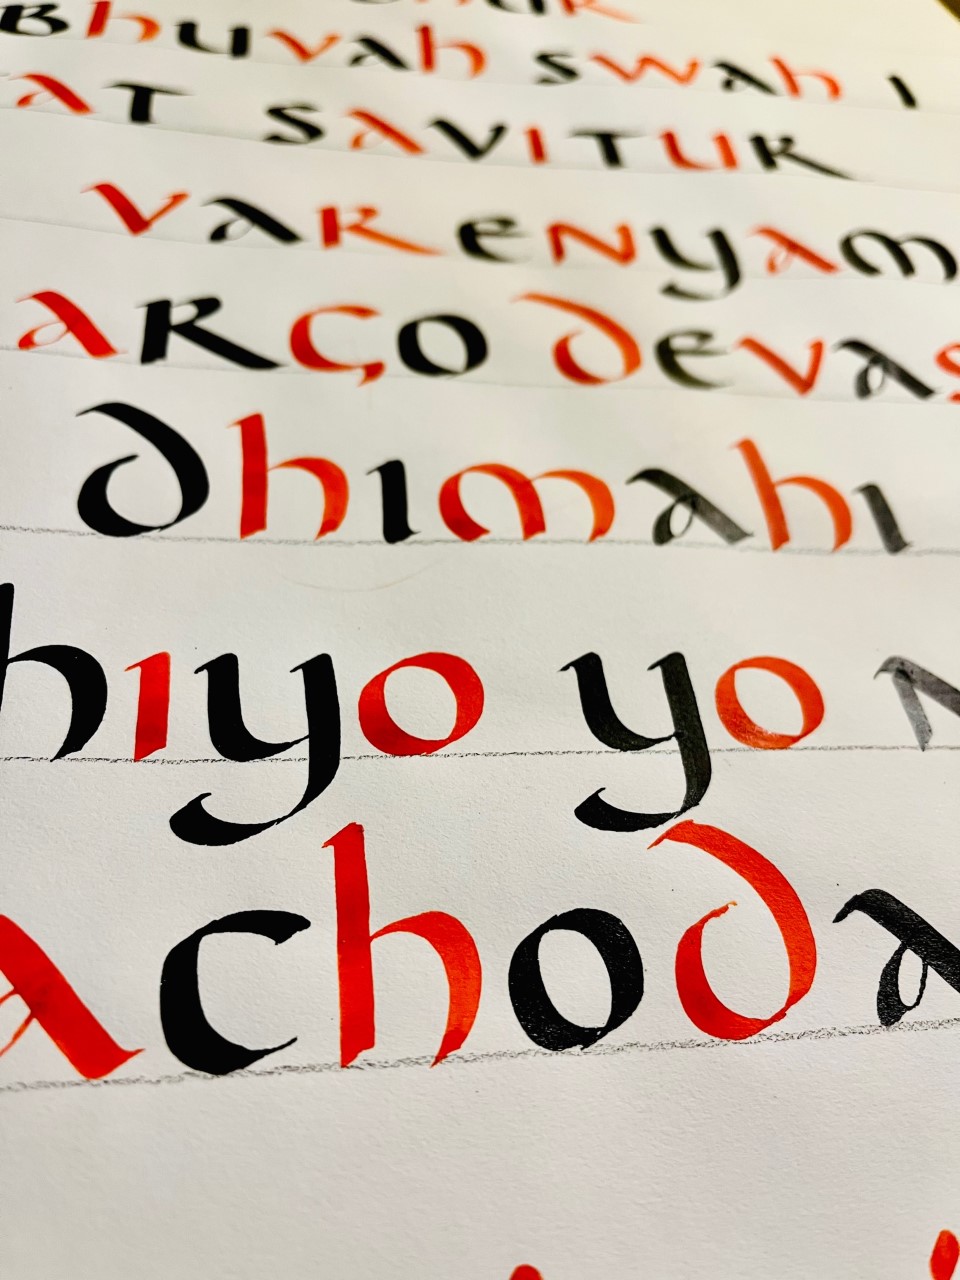 Bhuvah swah
at savitur
varenyam
arço devas
dhimahi
hiyo yo n
achoda